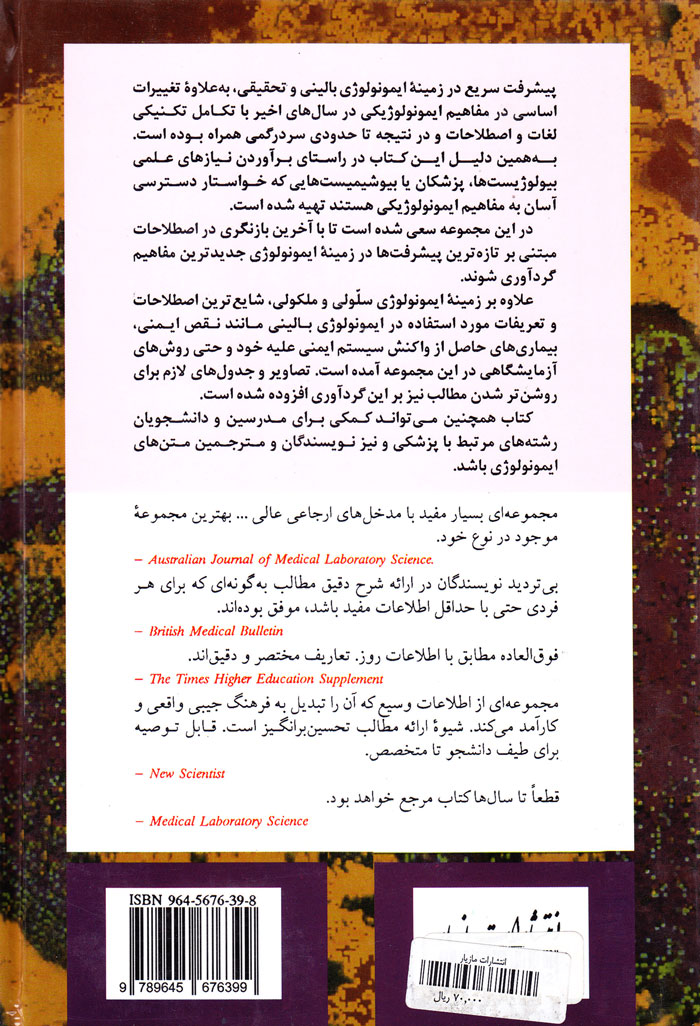 پیشرفت سریع در زمینهٔ ایمونولوژی بالینی و تحقیقی، به‌علاوهٔ تغییرات
اساسی در مفاهیم ایمونولوژیکی در سال‌های اخیر با تکامل تکنیکی
لغات و اصطلاحات و در نتیجه تا حدودی سردرگمی همراه بوده است.
به‌همین دلیل این کتاب در راستای برآوردن نیازهای علمی
بیولوژیست‌ها، پزشکان یا بیوشیمیست‌هایی که خواستار دسترسی
آسان به مفاهیم ایمونولوژیکی هستند تهیه شده است.
در این مجموعه سعی شده است تا با آخرین بازنگری در اصطلاحات
مبتنی بر تازه‌ترین پیشرفت‌ها در زمینهٔ ایمونولوژی جدیدترین مفاهیم
گردآوری شوند.
علاوه بر زمینهٔ ایمونولوژی سلّولی و ملکولی، شایع‌ترین اصطلاحات
و تعریفات مورد استفاده در ایمونولوژی بالینی مانند نقص ایمنی،
بیماری‌های حاصل از واکنش سیستم ایمنی علیه خود و حتی روش‌های
آزمایشگاهی در این مجموعه آمده است. تصاویر و جدول‌های لازم برای
روشن‌تر شدن مطالب نیز بر این گردآوری افزوده شده است.
کتاب همچنین می‌تواند کمکی برای مدرسین و دانشجویان
رشته‌های مرتبط با پزشکی و نیز نویسندگان و مترجمین متن‌های
ایمونولوژی باشد.
مجموعه‌ای بسیار مفید با مدخل‌های ارجاعی عالی ... بهترین مجموعهٔ
موجود در نوع خود.
– Australian Journal of Medical Laboratory Science.
بی‌تردید نویسندگان در ارائه شرح دقیق مطالب به‌گونه‌ای که برای هر
فردی حتی با حداقل اطلاعات مفید باشد، موفق بوده‌اند.
– British Medical Bulletin
فوق‌العاده مطابق با اطلاعات روز. تعاریف مختصر و دقیق‌اند.
– The Times Higher Education Supplement
مجموعه‌ای از اطلاعات وسیع که آن را تبدیل به فرهنگ جیبی واقعی و
کارآمد می‌کند. شیوهٔ ارائه مطالب تحسین‌برانگیز است. قابل توصیه
برای طیف دانشجو تا متخصص.
– New Scientist
قطعاً تا سال‌ها کتاب مرجع خواهد بود.
– Medical Laboratory Science
ISBN 964-5676-39-8
9 789645 676399
انتشارات مازیار
۷۰,۰۰۰ ریال